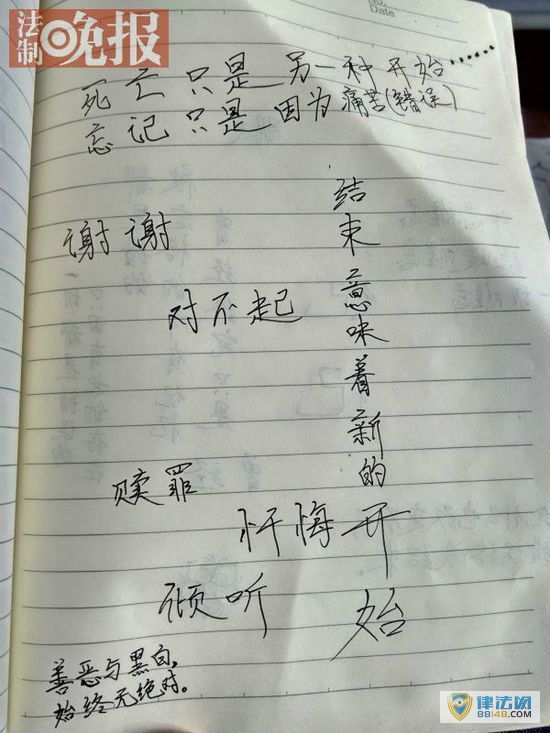 法制晚报
Date
死亡只是另一种开始……
忘记只是因为痛苦(错误)
谢谢
对不起
结束意味着新的开始
赎罪
忏悔
倾听
善恶与黑白,
始终无绝对。
律法网
88148.COM